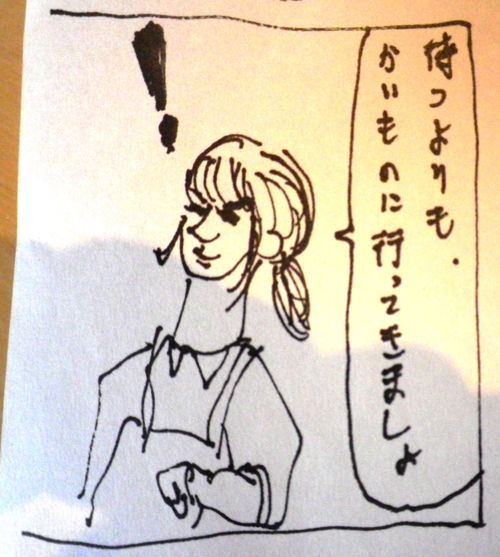 待つよりも.
かいものに行ってきましょ
!